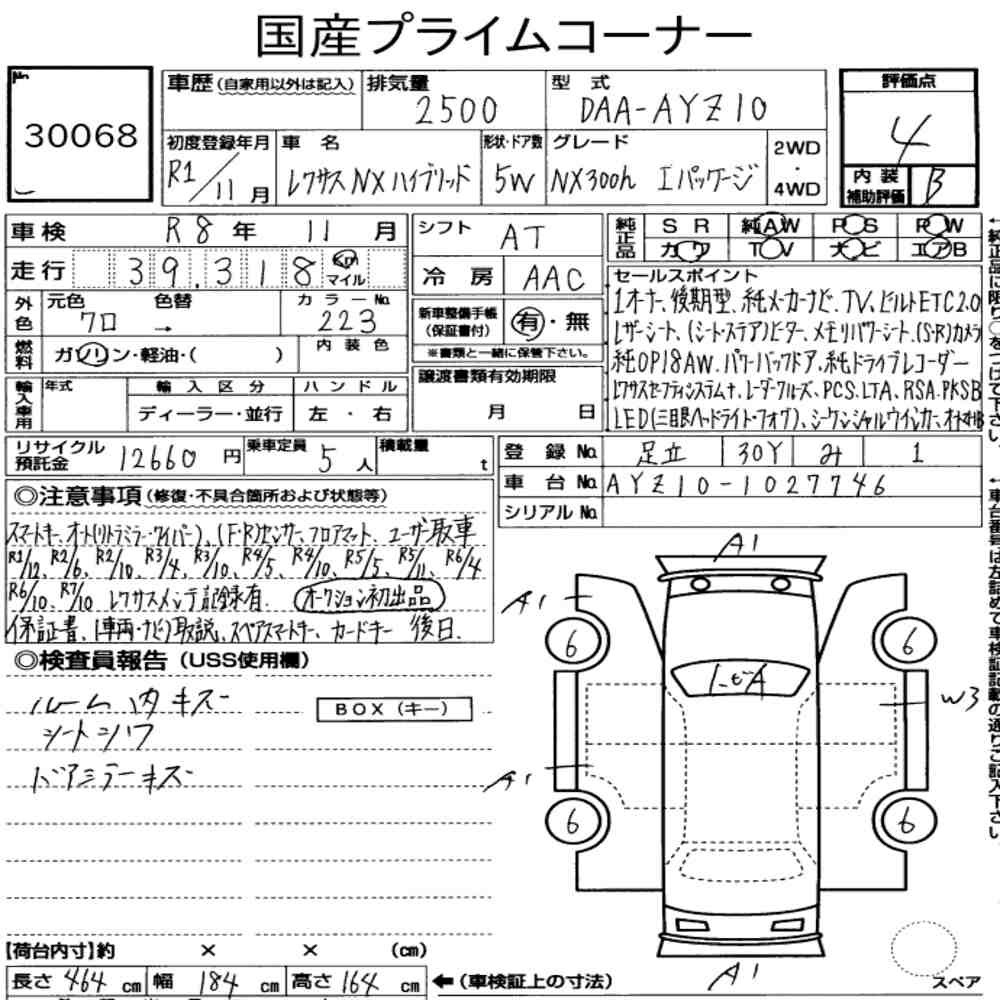 国産プライムコーナー
No.
30068
車歴(自家用以外は記入)
排気量
2500
型式
DAA-AYZ10
評価点
4
初度登録年月
R1/11月
車名
レクサスNXハイブリッド
形状・ドア数
5W
グレード
NX300h Iパッケージ
2WD
・
4WD
内装
補助評価
B
車検 R8年 11月
走行 39.318 Km マイル
外色
元色
クロ
色替
→
カラーNo.
223
燃料
ガソリン・軽油・( )
内装色
輸入車用
年式
輸入区分
ディーラー・並行
ハンドル
左・右
シフト AT
冷房 AAC
新車整備手帳
(保証書付)
有・無
※書類と一緒に保管下さい。
譲渡書類有効期限
月 日
純正品
SR 純AW PS PW
カワ TV ナビ エアB
セールスポイント
1オナ、後期型、純メーカーナビ、TV、ビルトETC2.0
レザーシート、(シート・ステア)ヒーター、メモリパワーシート、(S・R)カメラ
純OP18AW、パワーバックドア、純ドライブレコーダー
レクサスセーフティシステム+、レーダークルーズ、PCS、LTA、RSA、PKSB
LED(三眼ヘッドライト・フォグ)、シーケンシャルウインカー、オートマHB
リサイクル
預託金
12660円
乗車定員
5人
積載量
t
登録No. 足立 30Y み 1
車台No. AYZ10-1027746
シリアルNo.
◎注意事項(修復・不具合箇所および状態等)
スマートキー、オート(リトラミラー・ワイパー)、(F・R)センサー、フロアマット、ユーザー取車
R1/12、R2/6、R2/10、R3/4、R3/10、R4/5、R4/10、R5/5、R5/11、R6/4
R6/10、R7/10 レクサスメンテ記録有 オークション初出品
保証書、(車両・ナビ)取説、スペアスマートキー、カードキー 後日
◎検査員報告(USS使用欄)
ルーム内キズ
BOX(キー)
シートシワ
ドアミラーキズ
A1
A1
6
6
トビA
W3
A1
6
6
A1
スペア
【荷台内寸】約 × × (cm)
長さ 464cm 幅 184cm 高さ 164cm ←(車検証上の寸法)